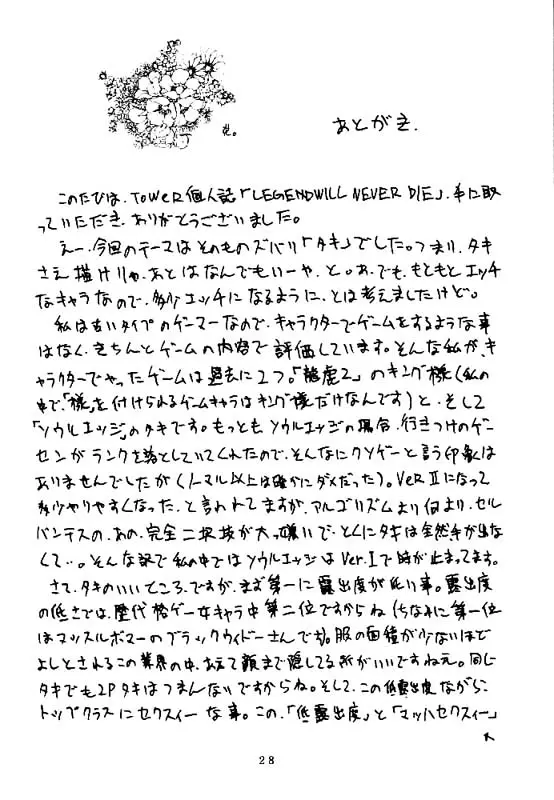 あとがき.
このたびは、TOWER個人誌「LEGEND WILL NEVER DIE」、手に取
っていただき、ありがとうございました。
えー、今回のテーマはそのものズバリ「タキ」でした。つまり、タキ
さえ描けりゃ、あとはなんでもいーや、と。あ、でも、もともとエッチ
なキャラなので、多少エッチになるように、とは考えましたけど。
私は古いタイプのゲーマーなので、キャラクターでゲームをするような事
はなく、きちんとゲームの内容で評価しています。そんな私が、キ
ャラクターでやったゲームは過去に2つ。「龍虎2」のキング様（私の
中で、「様」を付けられるゲームキャラはキング様だけなんです）と、そして
「ソウルエッジ」のタキです。もっともソウルエッジの場合、行きつけのゲー
センがランクを落としていてくれたので、そんなにクソゲーと言う印象は
ありませんでしたが（ノーマル以上は確かにダメだった）。Ver.Ⅱになって
多少やりやすくなった、と言われてますが、アルゴリズムより何より、セル
バンテスの、あの、完全二択技が大っ嫌いで、とくにタキは全然手が出な
くて…。そんな訳で私の中ではソウルエッジはVer.Ⅰで時が止まってます。
さて、タキのいいところ、ですが、まず第一に露出度が低い事。露出度
の低さでは、歴代格ゲー女キャラ中第二位ですからね（ちなみに第一位
はマッスルボマーのブラックウィドーさんです）。服の面積が少ないほど
よしとされるこの業界の中、あえて顔まで隠してる所がいいですねえ。同じ
タキでも2Pタキはつまんないですからね。そして、この低露出度ながら、
トップクラスにセクスィーな事。この、「低露出度」と「マッハセクスィー」
28